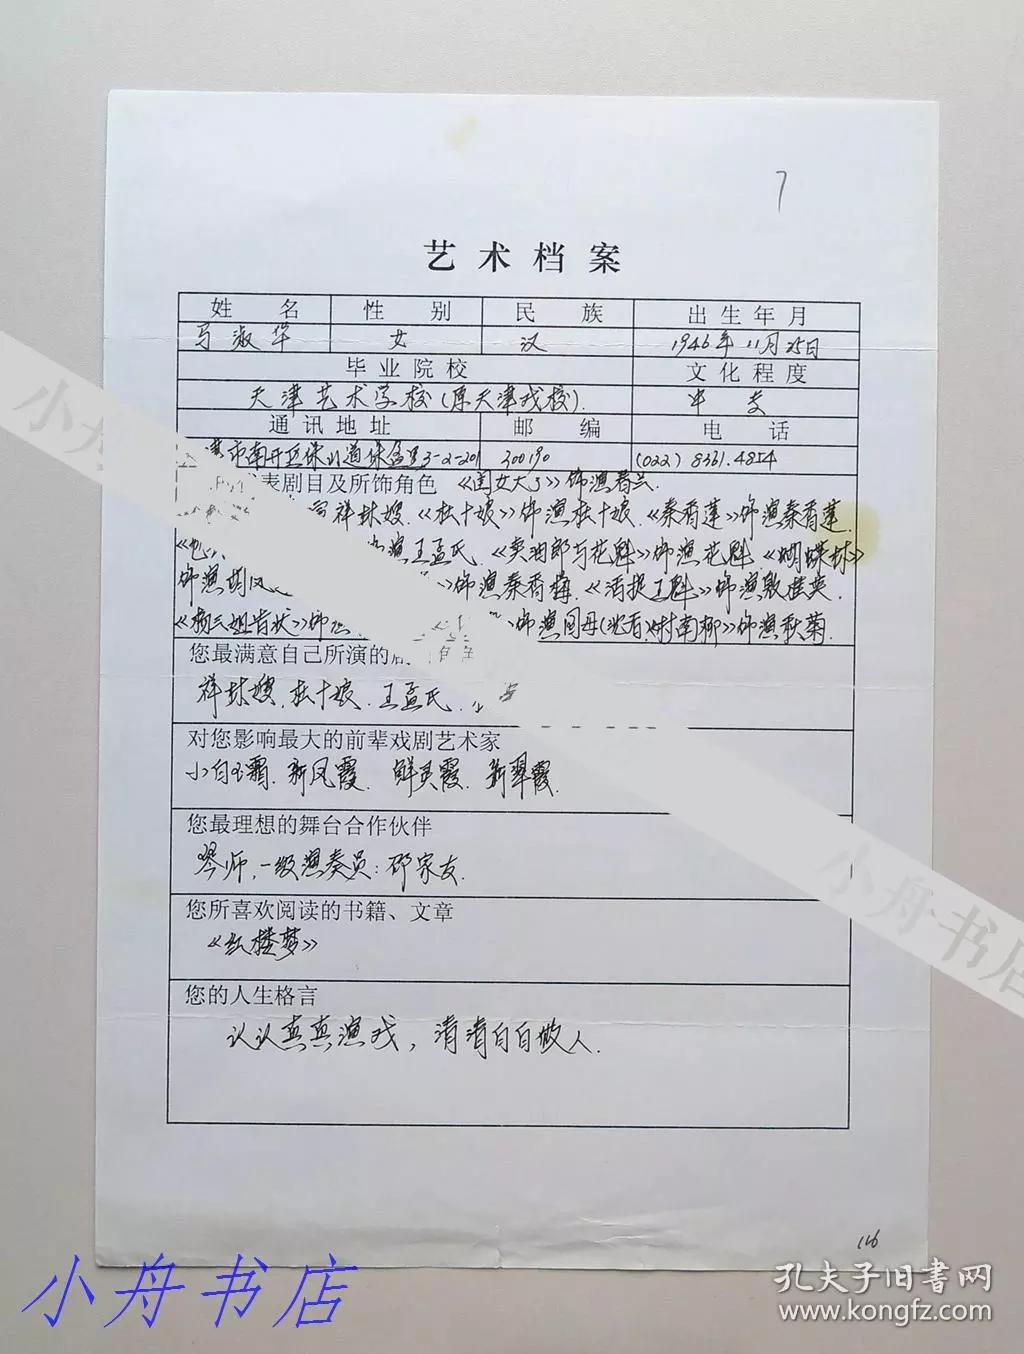 7
艺术档案
姓名 性别 民族 出生年月
马淑华 女 汉 1946年11月25日
毕业院校 文化程度
天津艺术学校(原天津戏校). 中专
通讯地址 邮编 电话
津市南开区保山道 3-2-201 300190 (022) 8361.4854
表剧目及所饰角色 《闺女大了》饰演春兰.
祥林嫂.《杜十娘》饰演杜十娘.《秦香莲》饰演秦香莲.
演王孟氏.《卖油郎与花魁》饰演花魁.《蝴蝶杯》
饰演胡凤 》饰演秦香梅.《活捉王魁》饰演敫桂英.
《杨三姐告状》饰演 》饰演 母 《村南柳》饰演秋菊.
您最满意自己所演的剧 角色
祥林嫂.杜十娘.王孟氏.
对您影响最大的前辈戏剧艺术家
小白玉霜.新凤霞.鲜灵霞.新翠霞.
您最理想的舞台合作伙伴
琴师.一级演奏员:邵家友.
您所喜欢阅读的书籍、文章
《红楼梦》
您的人生格言
认认真真演戏,清清白白做人.
116
小舟书店
小舟书店
孔夫子旧书网
www.kongfz.com